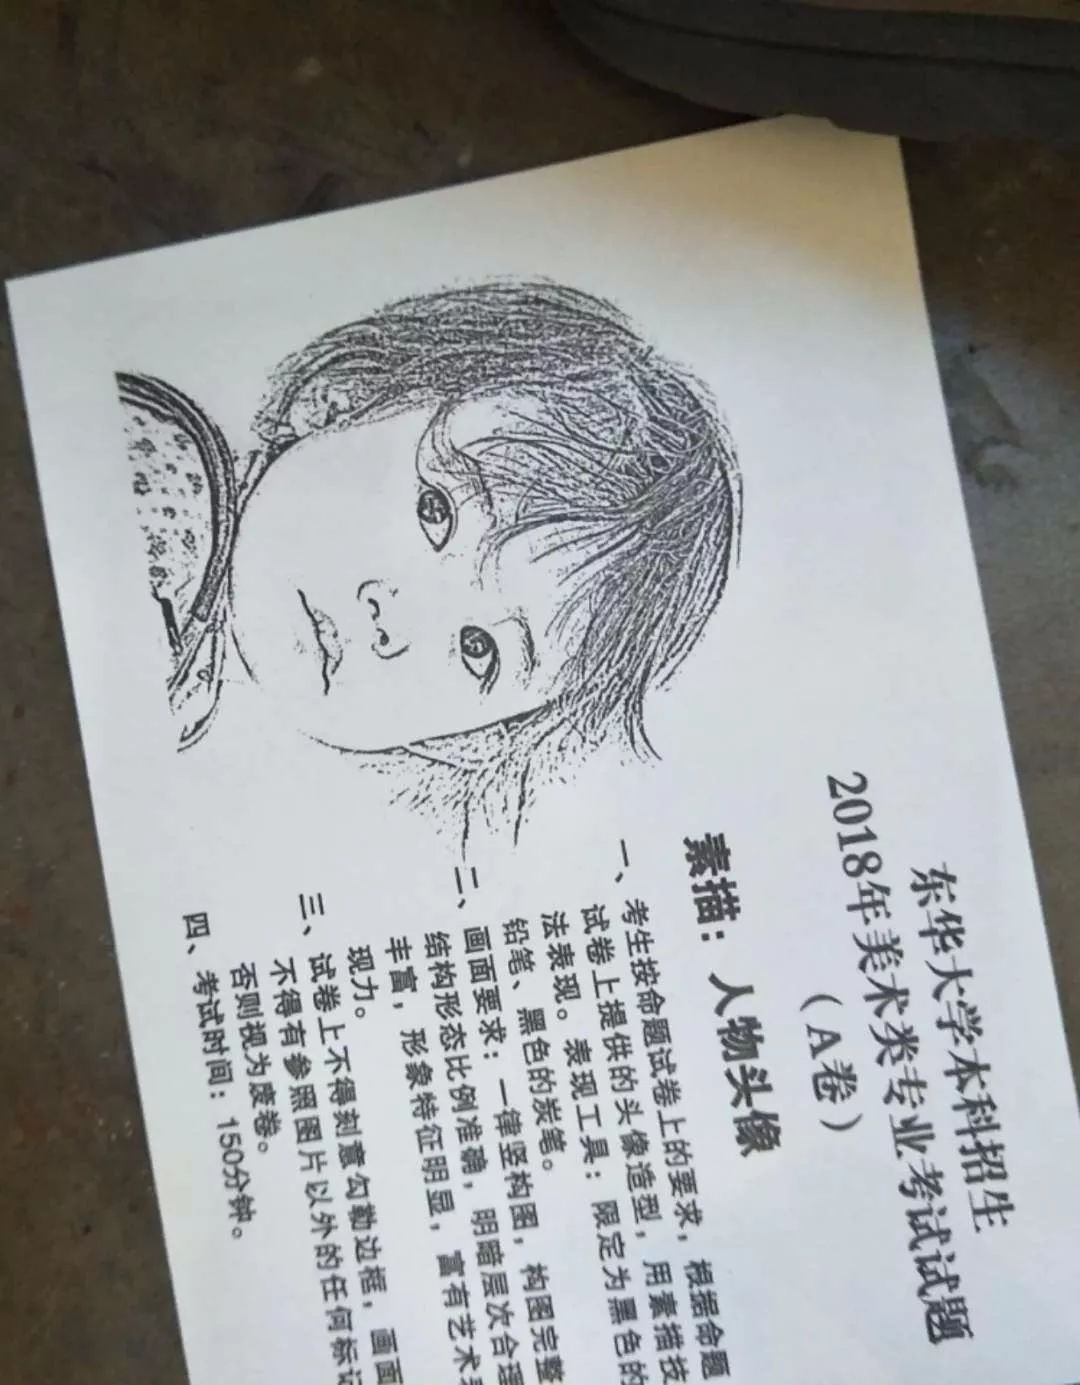 东华大学本科招生
2018年美术类专业考试试题
（A卷）
素描：人物头像
一、考生按命题试卷上的要求，根据命题
试卷上提供的头像造型，用素描技
法表现。表现工具：限定为黑色的
铅笔、黑色的炭笔。
二、画面要求：一律竖构图，构图完整
结构形态比例准确，明暗层次合理
丰富，形象特征明显，富有艺术表
现力。
三、试卷上不得刻意勾勒边框，画面
不得有参照图片以外的任何标记
否则视为废卷。
四、考试时间：150分钟。